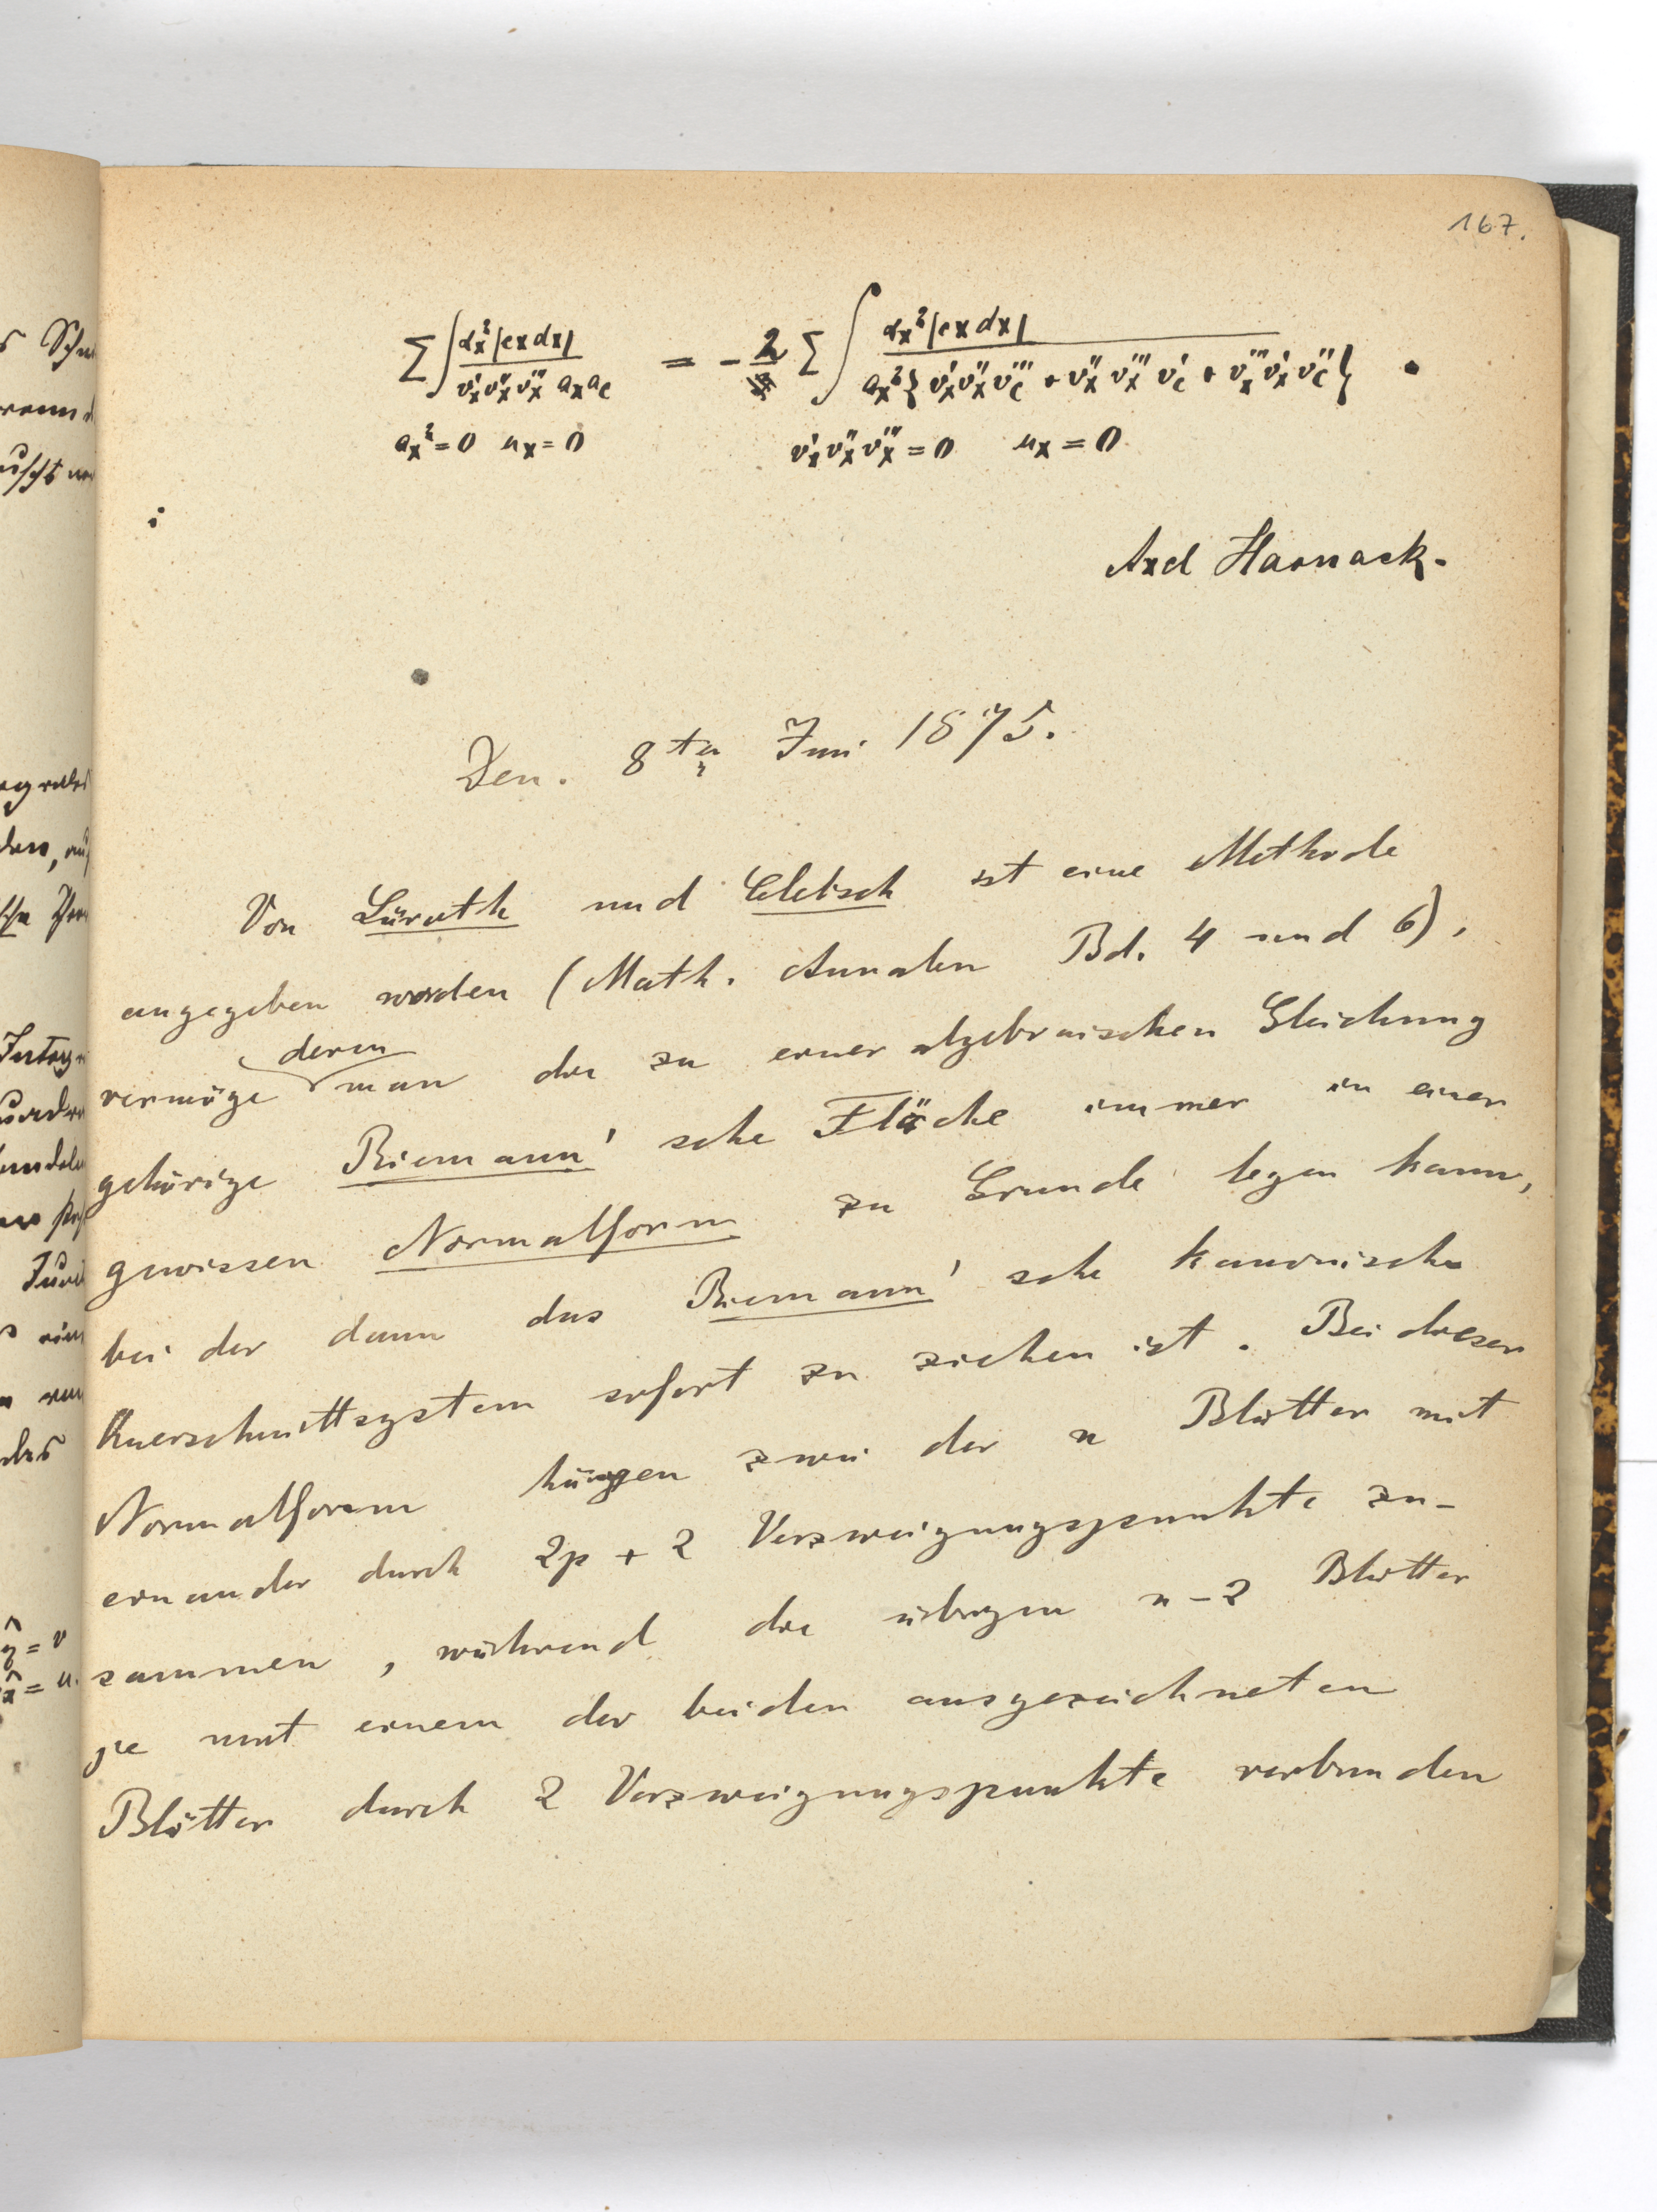 167.
∑∫ α_x²|cxdx| / v'_x v''_x v'''_x a_x a_c = − 2 ∑∫ α_x²|cxdx| / a_x²{v'_x v''_x v'''_c + v''_x v'''_x v'_c + v'''_x v'_x v''_c} .
a_x² = 0 u_x = 0 v'_x v''_x v'''_x = 0 u_x = 0
Axel Harnack.
Den. 8ten Juni 1875.
Von Lüroth und Clebsch ist eine Methode
angegeben worden (Math. Annalen Bd. 4 und 6),
vermöge deren man die zu einer algebraischen Gleichung
gehörige Riemann'sche Fläche immer in einer
gewissen Normalform zu Grunde legen kann,
bei der dann das Riemann'sche kanonische
Querschnittsystem sofort zu ziehen ist. Bei dieser
Normalform hängen zwei der n Blätter mit
einander durch 2p + 2 Verzweigungspunkte zu-
sammen, während die übrigen n - 2 Blätter
je mit einem der beiden ausgezeichneten
Blätter durch 2 Verzweigungspunkte verbunden